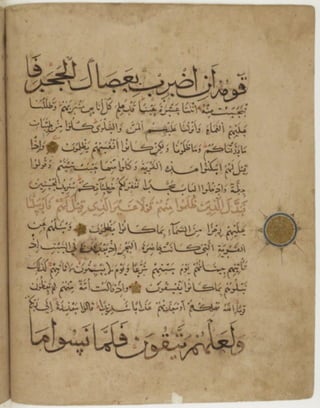 قومه أن اضرب بعصاك الحجر فا
نبجست منه اثنتا عشرة عينا قد علم كل أناس مشربهم وظللنا
عليهم الغمام وأنزلنا عليهم المن والسلوى كلوا من طيبات
ما رزقناكم وما ظلمونا ولكن كانوا أنفسهم يظلمون وإذ
قيل لهم اسكنوا هذه القرية وكلوا منها حيث شئتم وقولوا
حطة وادخلوا الباب سجدا نغفر لكم خطيئاتكم سنزيد المحسنين
فبدل الذين ظلموا منهم قولا غير الذي قيل لهم فأرسلنا
عليهم رجزا من السماء بما كانوا يظلمون وسئلهم عن
القرية التي كانت حاضرة البحر إذ يعدون في السبت إذ
تأتيهم حيتانهم يوم سبتهم شرعا ويوم لا يسبتون لا تأتيهم كذلك
نبلوهم بما كانوا يفسقون وإذ قالت أمة منهم لم تعظون
قوما الله مهلكهم أو معذبهم عذابا شديدا قالوا معذرة إلى ربكم
ولعلهم يتقون فلما نسوا ما